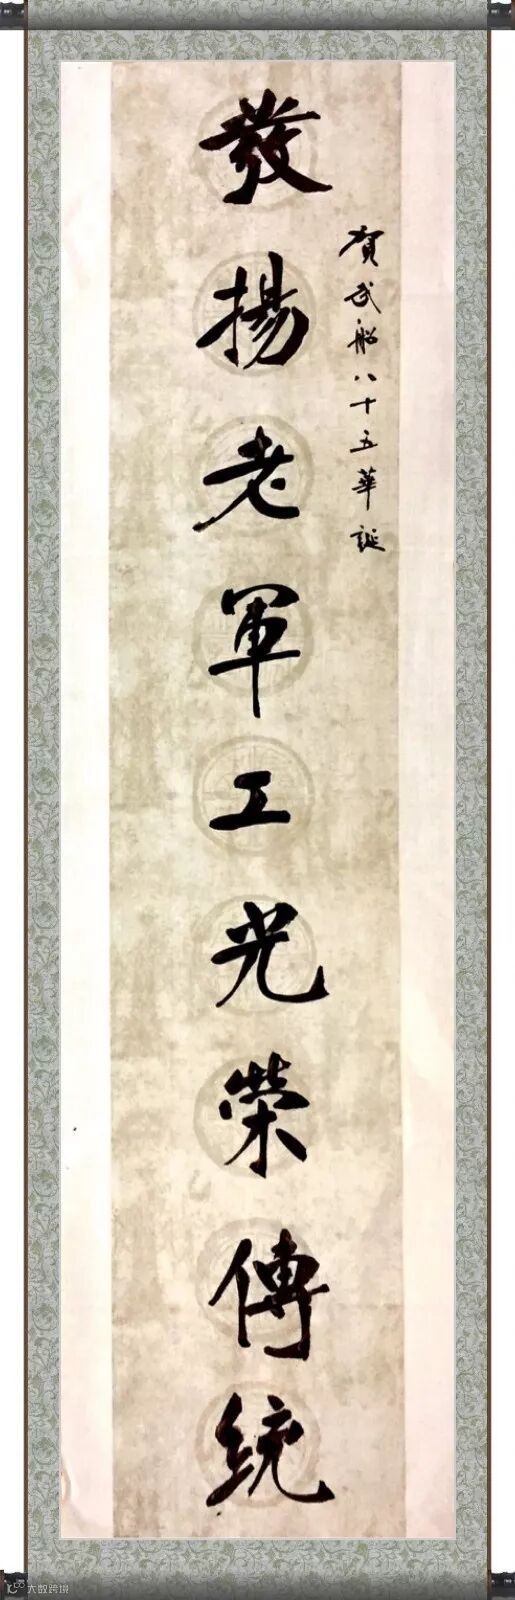 賀武船八十五華誕
發揚老軍工光榮傳統
大数跨境